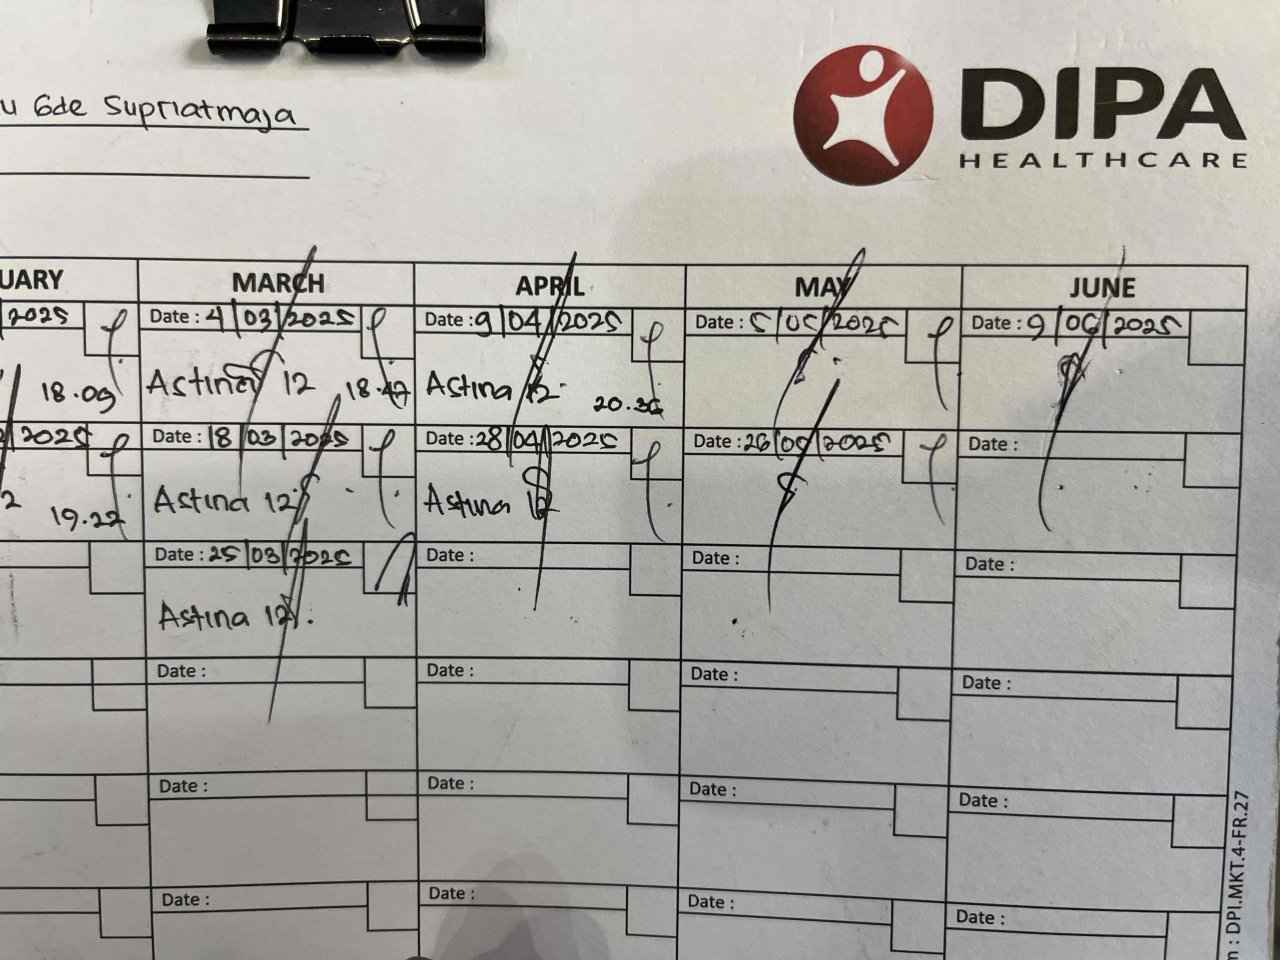 u Gde Supriatmaja
DIPA
HEALTHCARE
UARY MARCH APRIL MAY JUNE
2025 Date : 4/03/2025 Date : 9/04/2025 Date : 5/05/2025 Date : 9/06/2025
18.09 Astina 12 18.47 Astina 12 20.36
2025 Date : 18/03/2025 Date : 28/04/2025 Date : 26/05/2025 Date :
2 19.22 Astina 12 Astina 12
Date : 25/03/2025 Date : Date : Date :
Astina 12
Date : Date : Date : Date :
Date : Date : Date : Date :
Date : Date : Date : Date :
: DPI.MKT.4-FR.27